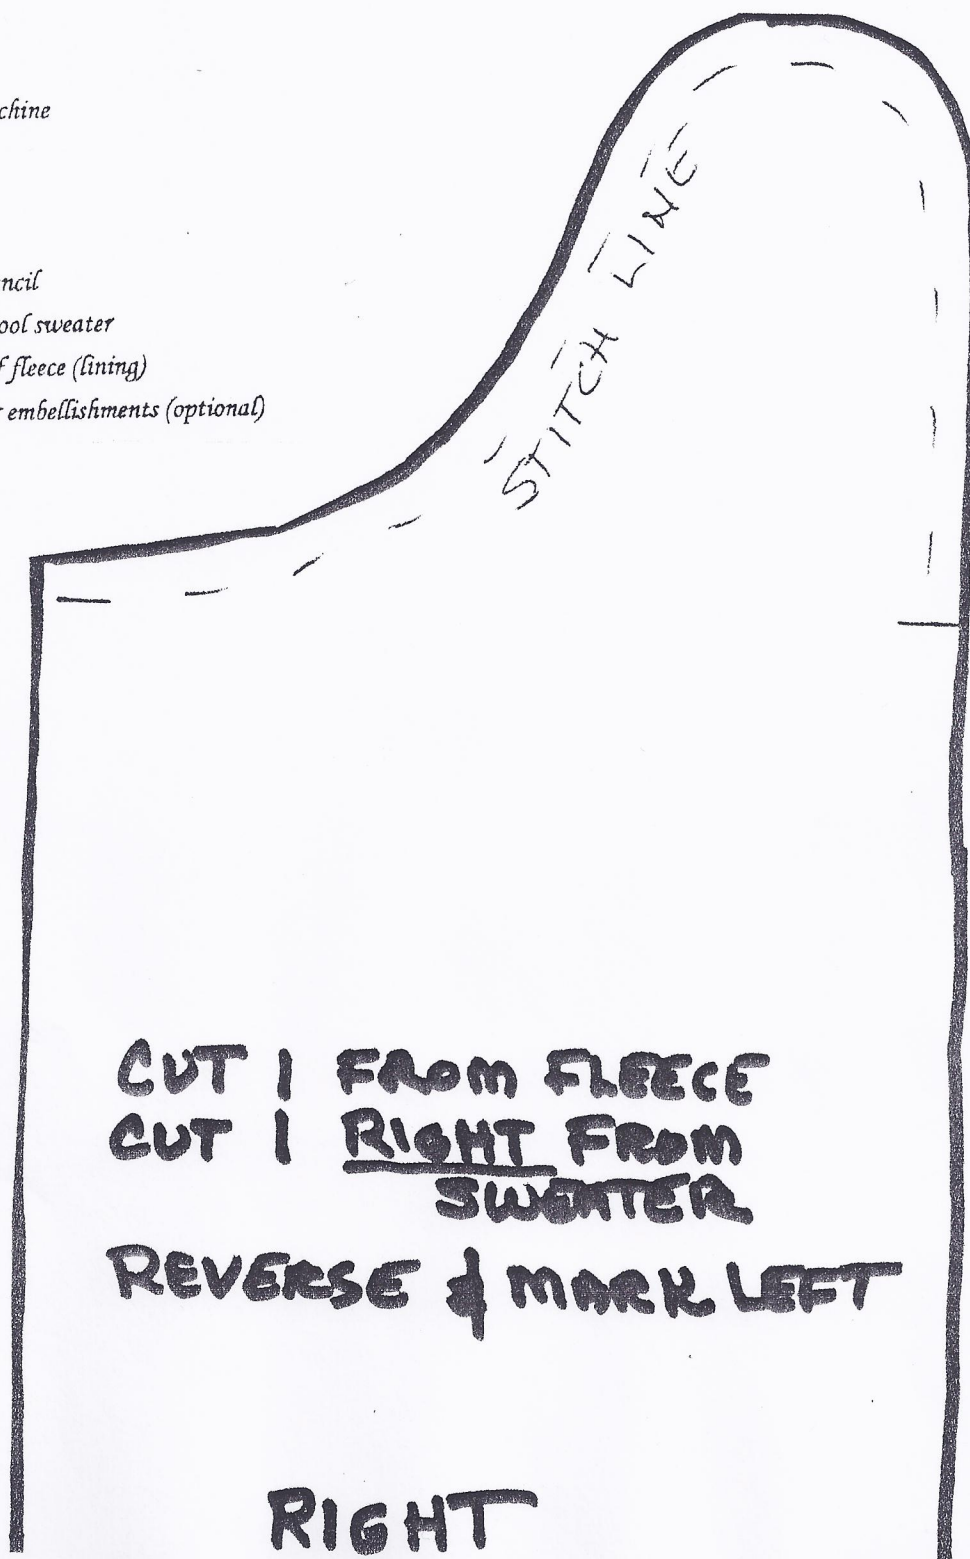 chine
ncil
ool sweater
f fleece (lining)
r embellishments (optional)
STITCH LINE
CUT 1 FROM FLEECE
CUT 1 RIGHT FROM
SWEATER
REVERSE & MARK LEFT
RIGHT